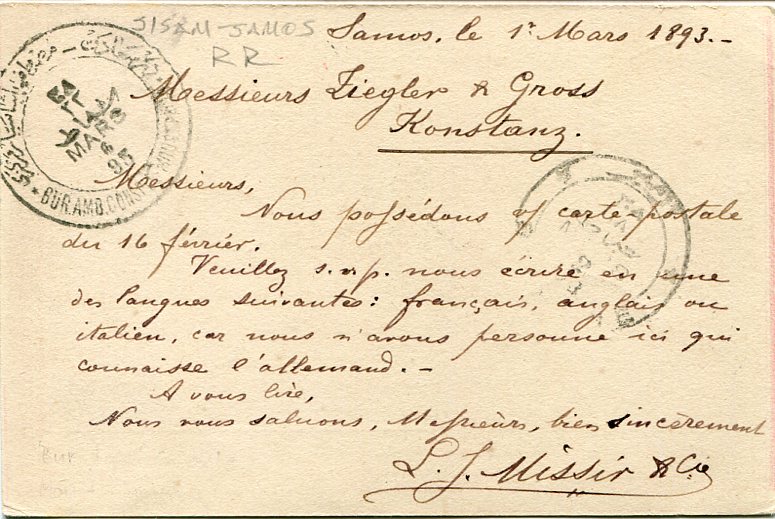 JISAM-SAMOS
RR
Samos, le 1r Mars 1893.-
Messieurs Ziegler & Gross
Konstanz.
MARS
BUR.AMB.CONS
Messieurs,
Nous possédons v/ carte-postale
du 16 février.
Veuillez s.v.p. nous écrire en une
des langues suivantes: français, anglais ou
italien, car nous n'avons personne ici qui
connaisse l'allemand.-
A vous lire,
Nous vous saluons, Messieurs, bien sincèrement
L. J. Missir & Cie